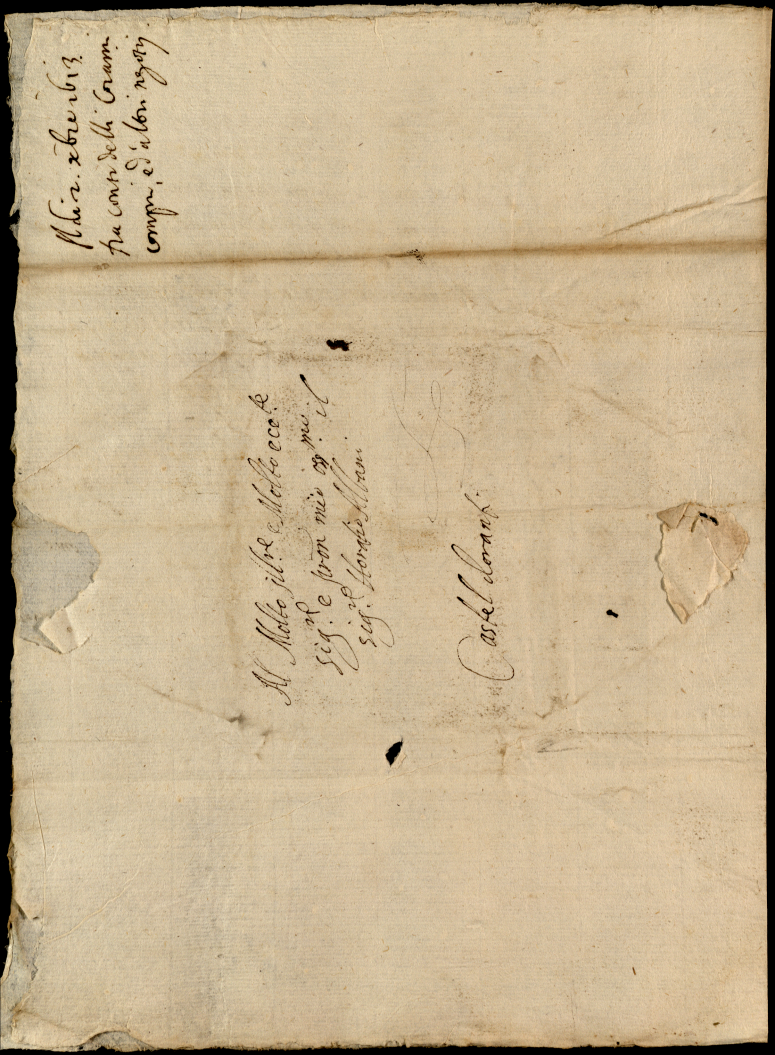 Al di 2. xbre 1613
fra conti delli Corami
compri, ed altri negotij
Al Molto Ill.re e Molto ecc.te
sig.re e pron mio oss.mo il
sig.re Horatio Albani.
Castel durante.